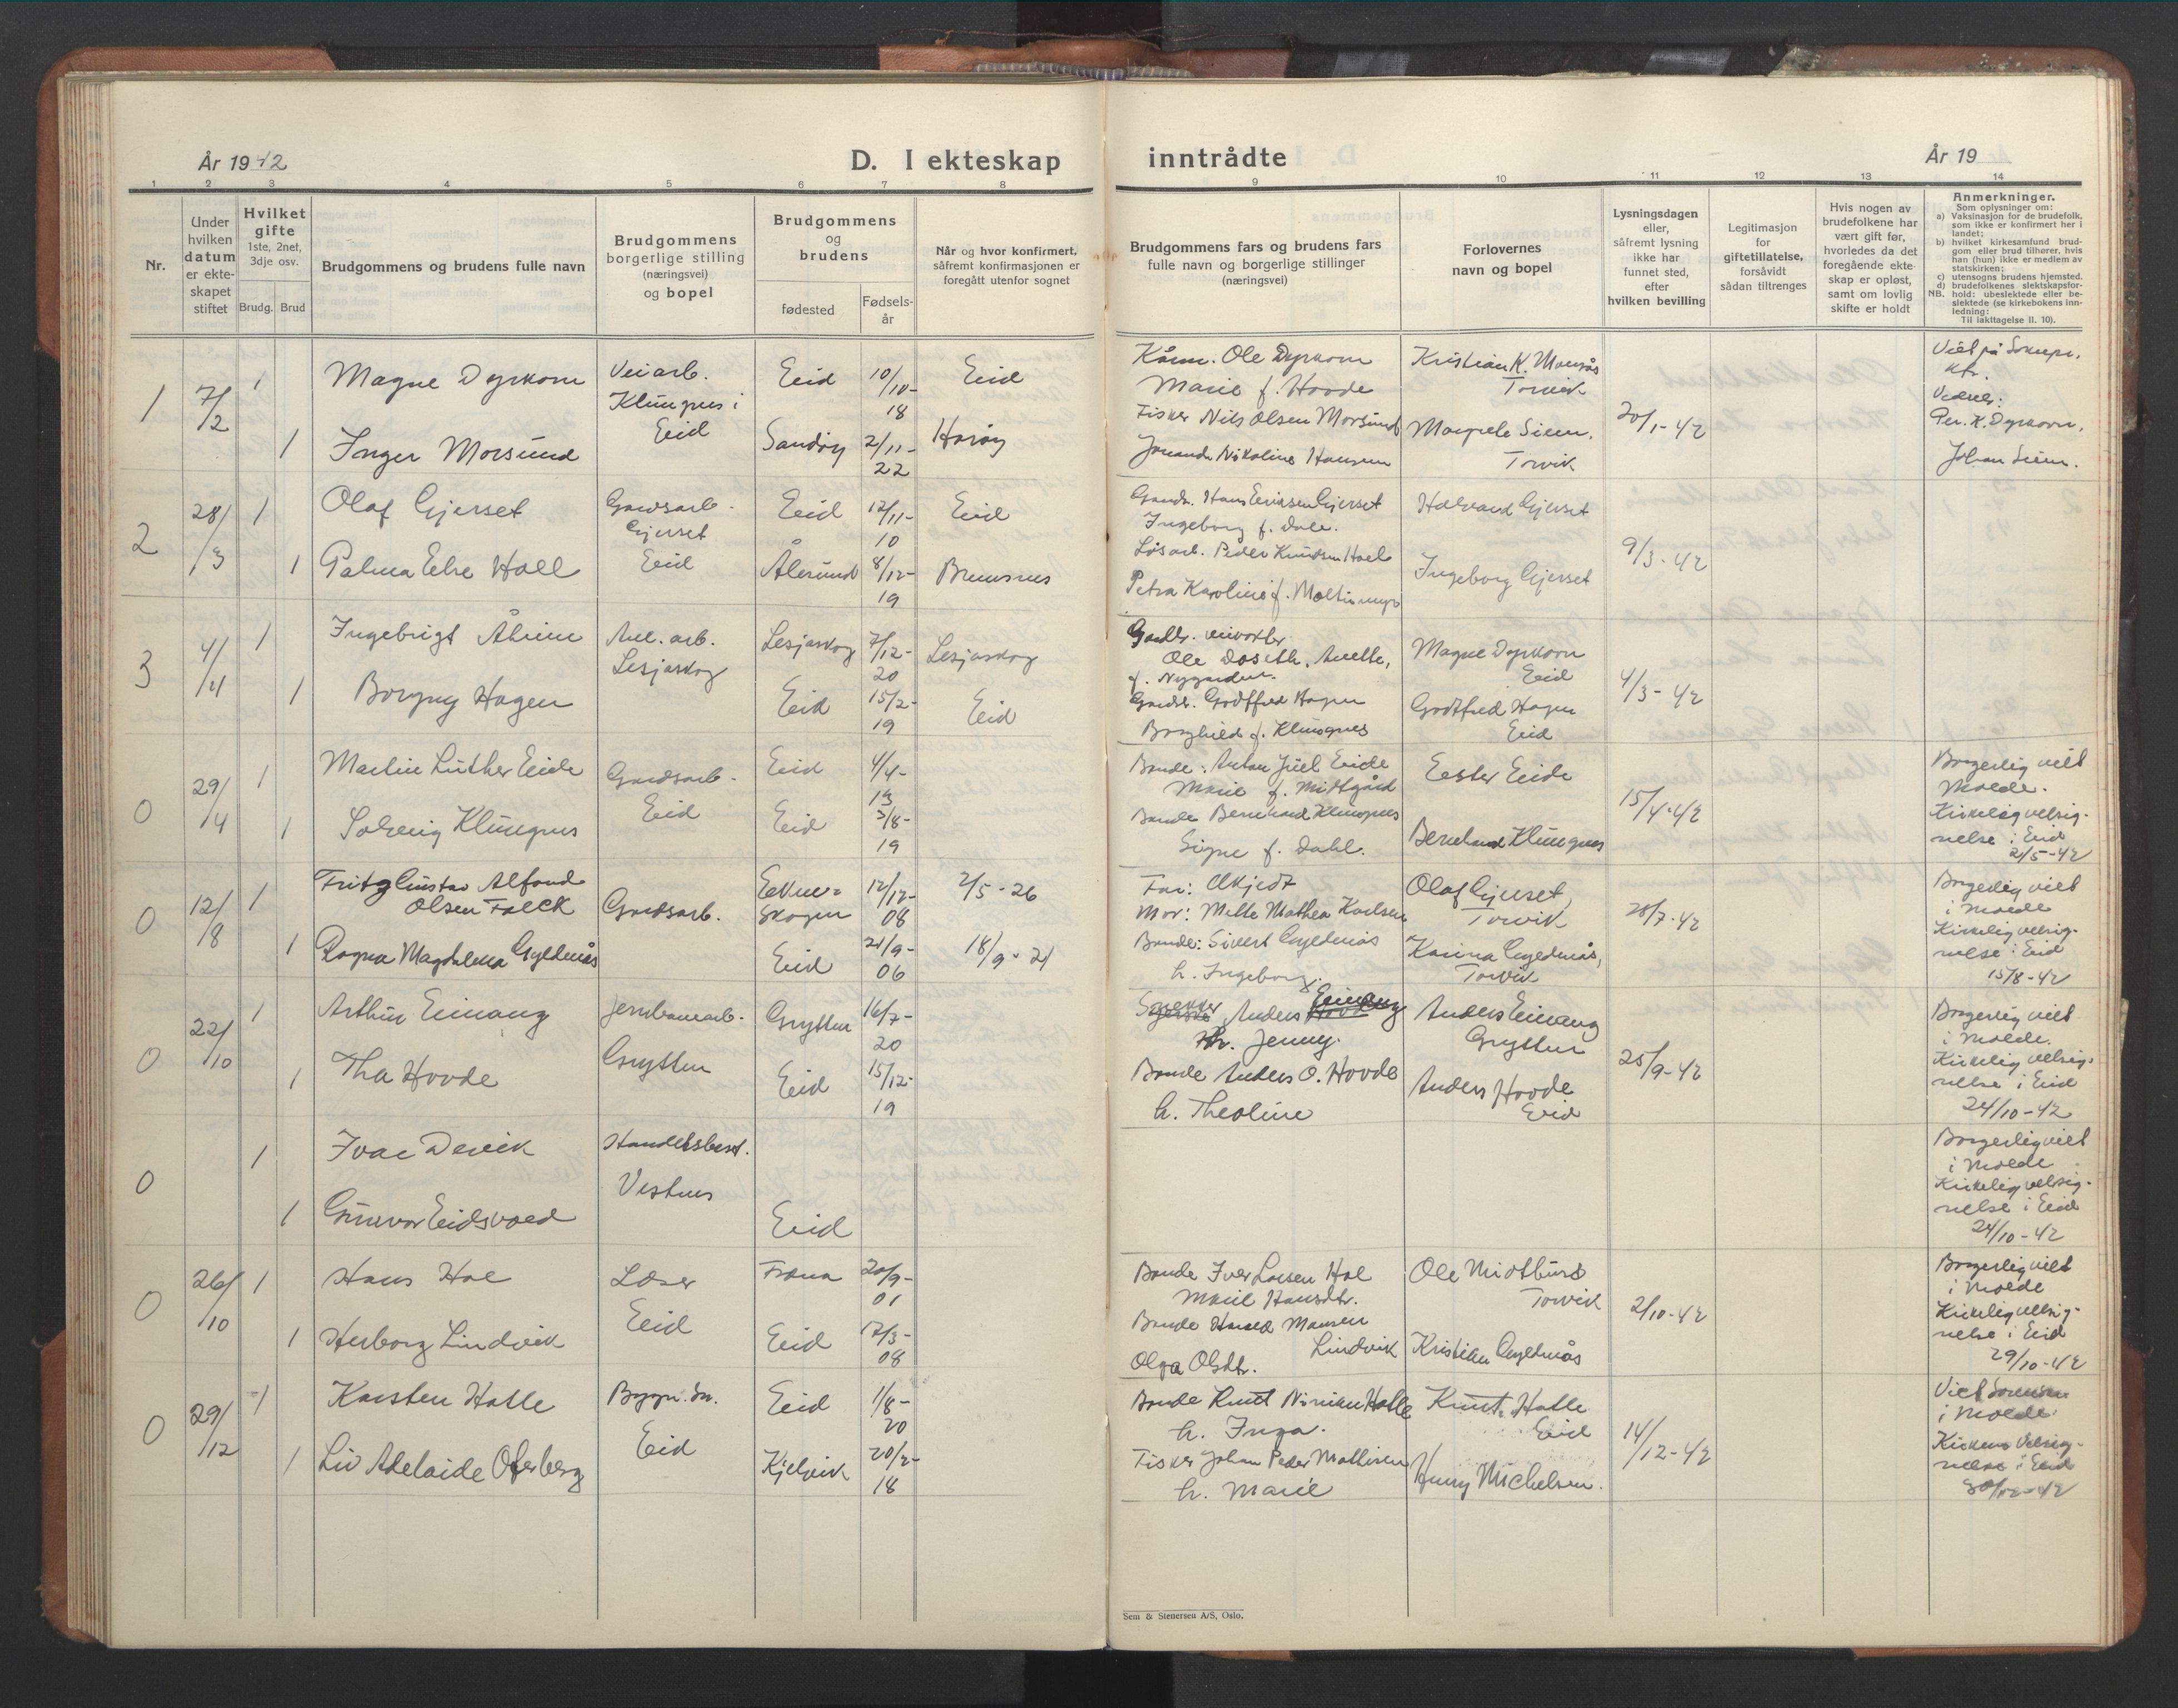 År 1942
D. I ekteskap
inntrådte
År 19
1 2 3 4 5 6 7 8 9 10 11 12 13 14
Nr.
Under
hvilken
datum
er ekte-
skapet
stiftet
Hvilket
gifte
1ste, 2net,
3dje osv.
Brudg. Brud
Brudgommens og brudens fulle navn
Brudgommens
borgerlige stilling
(næringsvei)
og bopel
Brudgommens
og
brudens
fødested
Fødsels-
år
Når og hvor konfirmert,
såfremt konfirmasjonen er
foregått utenfor sognet
Brudgommens fars og brudens fars
fulle navn og borgerlige stillinger
(næringsvei)
Forlovernes
navn og bopel
Lysningsdagen
eller,
såfremt lysning
ikke har
funnet sted,
efter
hvilken bevilling
Legitimasjon
for
giftetillatelse,
forsåvidt
sådan tiltrenges
Hvis nogen av
brudefolkene har
vært gift før,
hvorledes da det
foregående ekte-
skap er opløst,
samt om lovlig
skifte er holdt
Anmerkninger.
Som oplysninger om:
a) Vaksinasjon for de brudefolk,
som ikke er konfirmert her i
landet;
b) hvilket kirkesamfund brud-
gom eller brud tilhører, hvis
han (hun) ikke er medlem av
statskirken;
c) utensogns brudens hjemsted.
d) brudefolkenes slektskapsfor-
NB. hold: ubeslektede eller be-
slektede (se kirkebokens inn-
ledning:
Til iakttagelse II. 10).
1 7/2 1 Magne Dyrkorn
Veiarb.
Klungnes i
Eid
Eid 10/10-
18
Eid
1 Inger Morsund
Sandøy 2/11-
22
Harøy
Ole Dyrkorn
Marie f. Hovde
Fisker Nils Olsen Morsund
Nikoline Hansen
Kristian K. Monsås
Torvik
Margrete Siem.
Torvik
20/1-42
Viet på
Per. K. Dyrkorn.
Johan Siem.
2 28/3 1 Olaf Gjerset
Gardsarb.
Gjerset
Eid
Eid 12/11-
10
Eid
1 Palma Hoel
Ålesund 8/12-
19
Bremsnes
Hans Eriksen Gjerset
Ingeborg f. Dale.
Løsarb. Peder Knudsen Hoel
Petra Karoline f.
Halvard Gjerset
Ingeborg Gjerset
9/3-42
3 4/4 1 Ingebrigt Åheim
Anl. arb.
Lesjaskog
Lesjaskog 7/12-
20
Lesjaskog
1 Borgny Hagen
Eid 15/2-
19
Eid
Ole Anette,
f. Nygarden.
Gardbr. Godtfred Hagen
Borghild f. Klungnes
Magne Dyrkorn
Eid
Godtfred Hagen
Eid
4/3-42
0 29/4 1 Martin Luther Eide
Gardsarb.
Eid
Eid 4/4-
13
1 Solveig Klungnes
Eid 3/8-
19
Bonde: Anton Juel Eide
Marie f. Midtgård
Bonde Bernhard Klungnes
Signe f. Dahl.
Ester Eide
Bernhard Klungnes
15/4-42
Borgerlig viet
Molde.
Kirkelig velsig-
nelse i Eid
2/5-42
0 12/8 1 Fritz Gustav
Olsen Falck
Gardsarb.
12/12-
08
2/5-26
1 Ragna Magdalena Gyldenås
Eid 21/9-
06
18/9-21
Far: Ukjedt
Mor: Mette Mathea Karlsen
Bonde: Sivert Gyldenås
h. Ingeborg.
Olaf Gjerset,
Torvik
Karina Gyldenås,
Torvik
28/7-42
Borgerlig viet
i Molde
Kirkelig velsig-
nelse i Eid
15/8-42
0 22/10 1 Arthur Einang
Jernbanearb.
Grytten
Grytten 16/7-
20
1 Tha Hovde
Eid 15/12-
19
Snekker Anders Einang
h. Jenny.
Bonde Anders O. Hovde
h. Theoline
Anders Einang
Grytten
Anders Hovde
Eid
25/9-42
Borgerlig viet
i Molde.
Kirkelig velsig-
nelse i Eid
24/10-42
0 1 Ivar Devik
Handelsbest.
Vestnes
1 Gunvor Eidsvoed
Eid
Borgerlig viet
i Molde
Kirkelig velsig-
nelse i Eid
24/10-42
0 26/10 1 Hans Hol
Lærer
Eid
Fræna 20/9-
01
1 Herborg Lindvik
Eid 17/3-
08
Bonde Iver Larsen Hol
Marit Hansdtr.
Bonde Harald Monsen
Lindvik
Olga Olsdtr.
Ole Midtbust
Torvik
Kristian Gyldenås
2/10-42
Borgerlig viet
i Molde
Kirkelig velsig-
nelse i Eid
29/10-42
0 29/12 1 Karsten Hatle
Bygn. sn.
Eid
Eid 1/8-
20
1 Liv Adelaide Oferberg
Kjelvik 20/2-
18
Bonde Knut Hatle
h. Inga.
Fisker Johan Peder Mathisen
h. Marie
Knut Hatle
Eid
Henry Michelsen.
14/12-42
Viet
i Molde.
Kirkens velsig-
nelse i Eid
30/12-42
Sem & Stenersen A/S, Oslo.